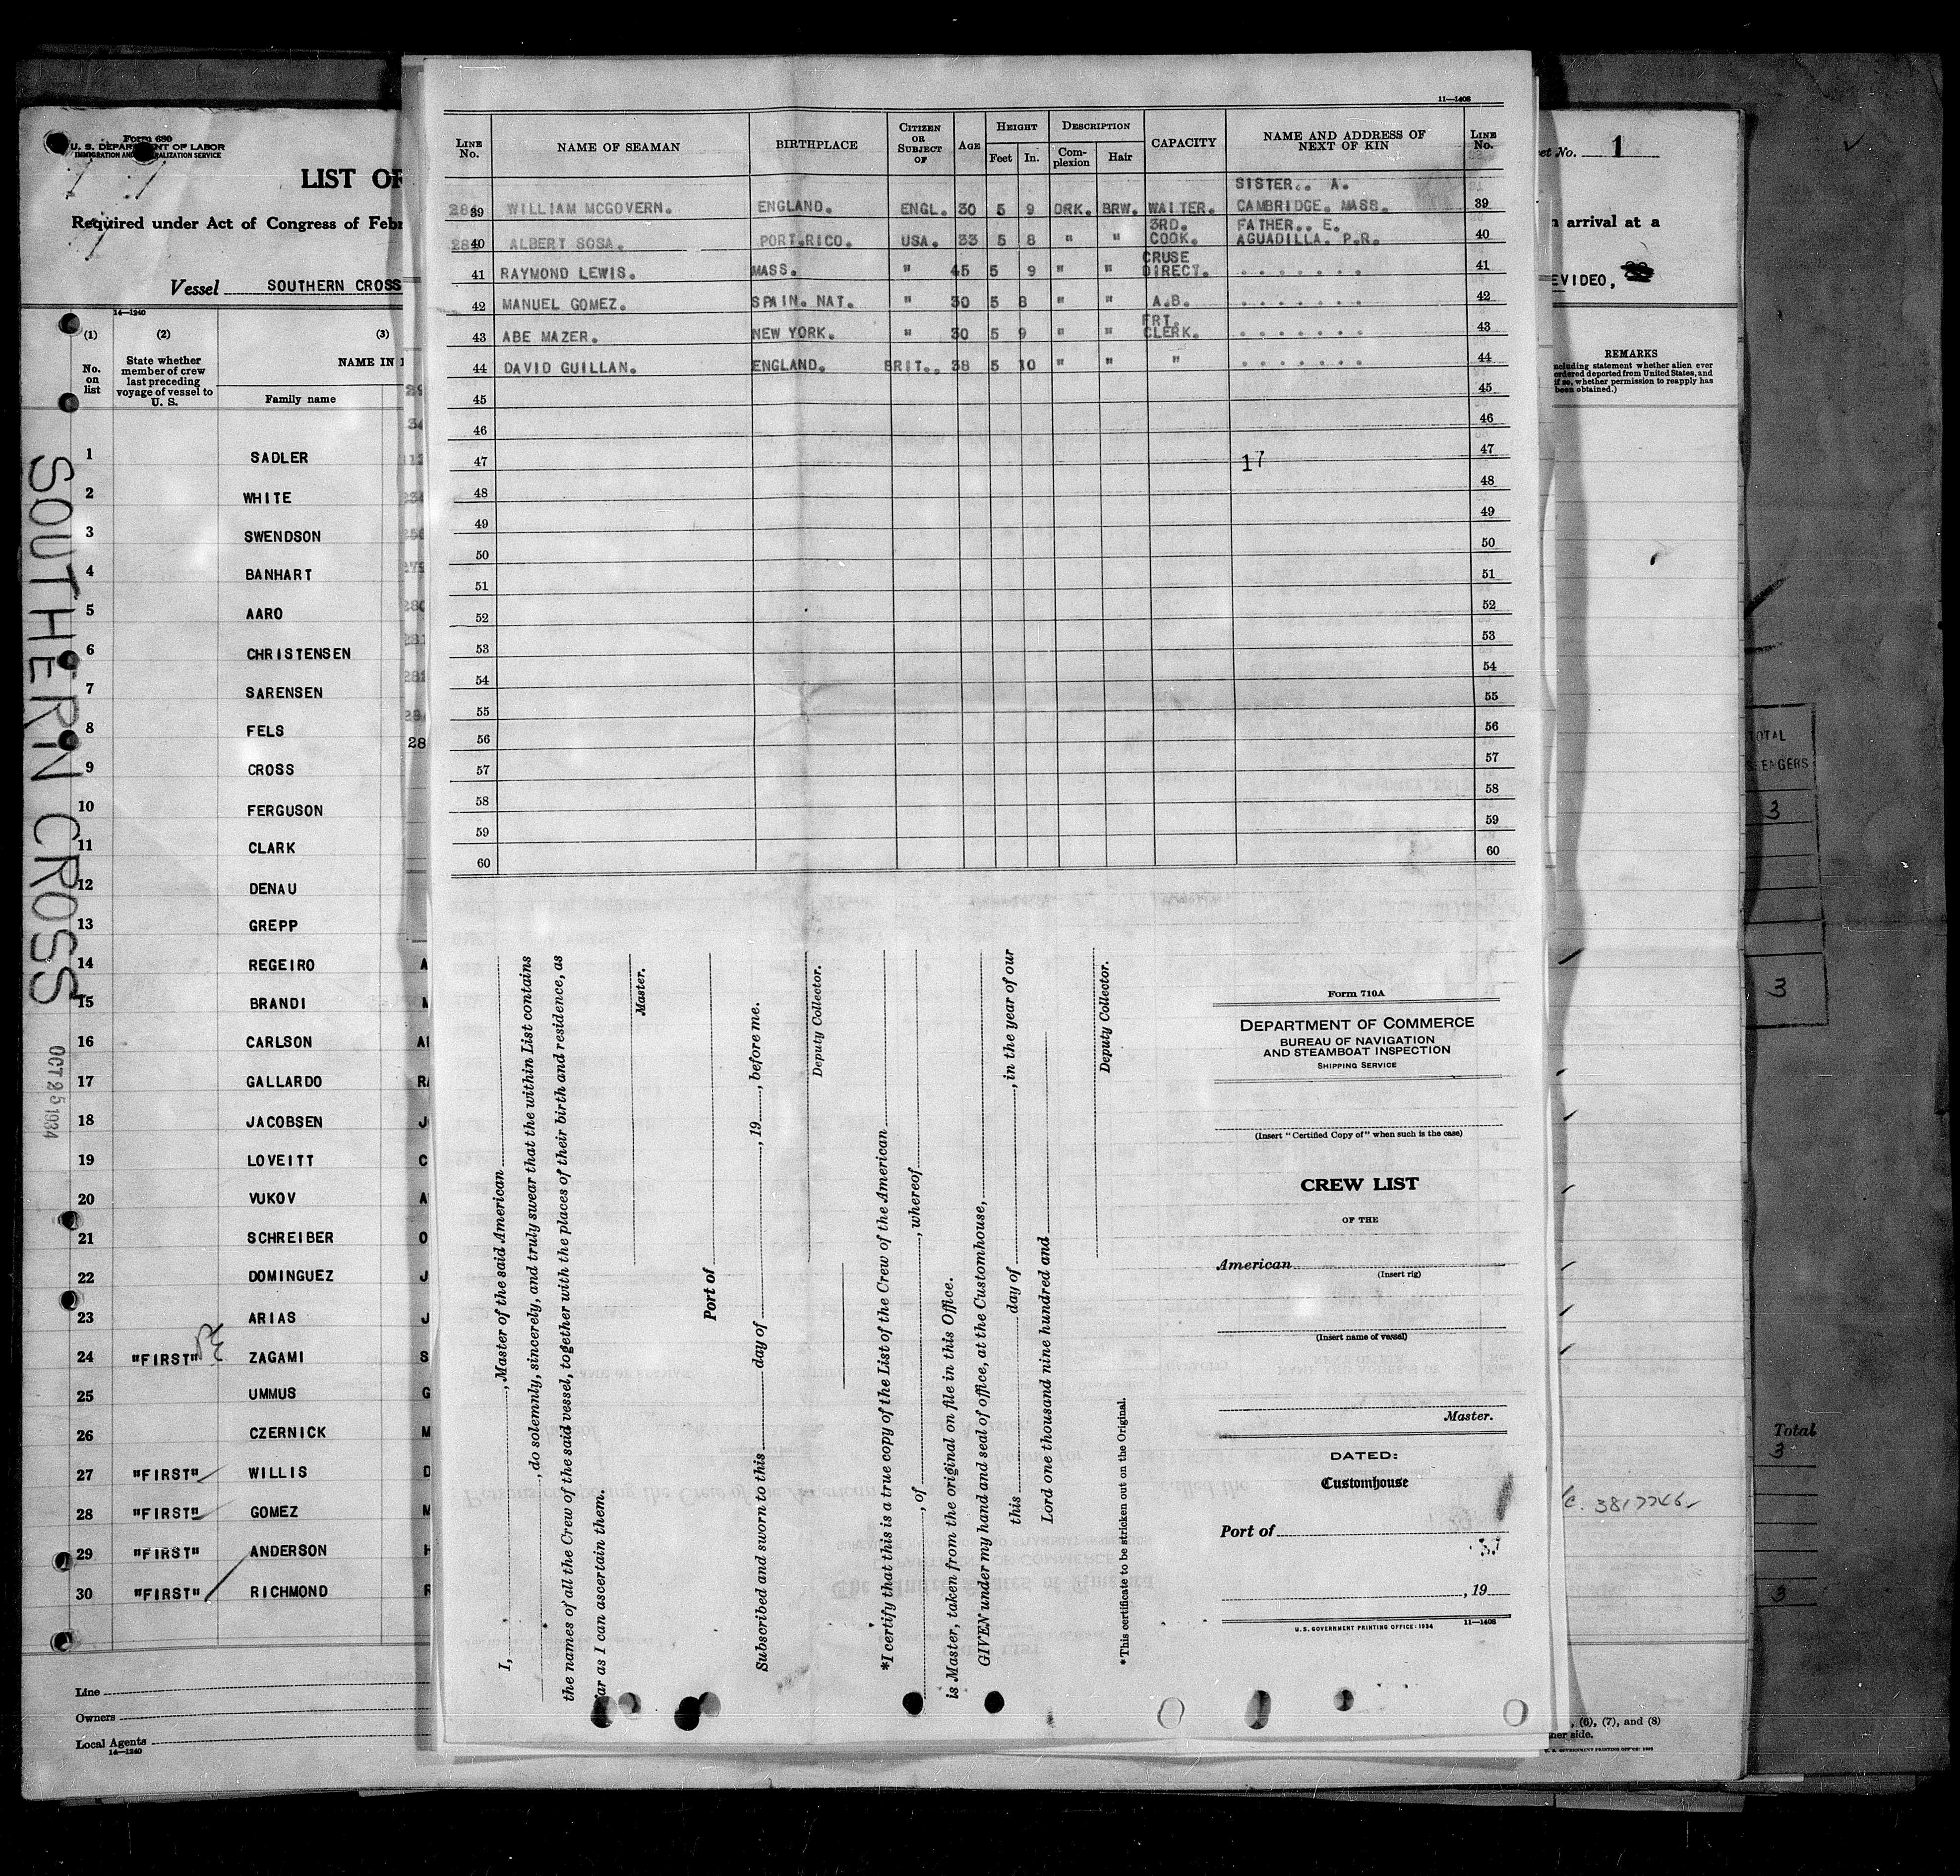 Form 680
U. S. DEPARTMENT OF LABOR
IMMIGRATION AND NATURALIZATION SERVICE
LIST OF
Required under Act of Congress of Febr
Vessel SOUTHERN CROSS
14—1240
(1) (2) (3)
No. on list
State whether member of crew last preceding voyage of vessel to U. S.
NAME IN
Family name
1 SADLER
2 WHITE
3 SWENDSON
4 BANHART
5 AARO
6 CHRISTENSEN
7 SARENSEN
8 FELS
9 CROSS
10 FERGUSON
11 CLARK
12 DENAU
13 GREPP
14 REGEIRO A
15 BRANDI
16 CARLSON
17 GALLARDO
18 JACOBSEN J
19 LOVEITT C
20 VUKOV A
21 SCHREIBER O
22 DOMINGUEZ J
23 ARIAS J
24 "FIRST" ZAGAMI S
25 UMMUS G
26 CZERNICK M
27 "FIRST" WILLIS D
28 "FIRST" GOMEZ M
29 "FIRST" ANDERSON H
30 "FIRST" RICHMOND R
Line
Owners
Local Agents
14—1240
SOUTHERN CROSS
OCT 25 1934
11—1408
LINE No. NAME OF SEAMAN BIRTHPLACE CITIZEN OR SUBJECT OF AGE HEIGHT Feet In. DESCRIPTION Complexion Hair CAPACITY NAME AND ADDRESS OF NEXT OF KIN LINE No.
SISTER.. A.
39 WILLIAM MCGOVERN. ENGLAND. ENGL. 30 5 9 DRK. BRW. WAITER. CAMBRIDGE. MASS. 39
3RD. FATHER.. E.
40 ALBERT SOSA. PORT.RICO. USA. 33 5 8 " " COOK. AGUADILLA. P.R. 40
CRUSE
41 RAYMOND LEWIS. MASS. " 45 5 9 " " DIRECT. . . . . . . . 41
42 MANUEL GOMEZ. SPAIN. NAT. " 30 5 8 " " A.B. . . . . . . . 42
FRT.
43 ABE MAZER. NEW YORK. " 30 5 9 " " CLERK. . . . . . . . 43
44 DAVID GUILLAN. ENGLAND. BRIT.. 38 5 10 " " " . . . . . . . 44
45 45
46 46
47 17 47
48 48
49 49
50 50
51 51
52 52
53 53
54 54
55 55
56 56
57 57
58 58
59 59
60 60
I, , Master of the said American
, do solemnly, sincerely, and truly swear that the within List contains
the names of all the Crew of the said vessel, together with the places of their birth and residence, as
far as I can ascertain them.
Master.
Port of
Subscribed and sworn to this day of , 19 , before me.
Deputy Collector.
*I certify that this is a true copy of the List of the Crew of the American
, of , whereof
is Master, taken from the original on file in this Office.
GIVEN under my hand and seal of office, at the Customhouse,
this day of , in the year of our
Lord one thousand nine hundred and
Deputy Collector.
*This certificate to be stricken out on the Original.
Form 710A
DEPARTMENT OF COMMERCE
BUREAU OF NAVIGATION
AND STEAMBOAT INSPECTION
SHIPPING SERVICE
(Insert "Certified Copy of" when such is the case)
CREW LIST
OF THE
American
(Insert rig)
(Insert name of vessel)
Master.
DATED:
Customhouse
Port of
, 19
U. S. GOVERNMENT PRINTING OFFICE: 1934 11—1408
et No. 1
arrival at a
EVIDEO,
REMARKS
ncluding statement whether alien ever
ordered deported from United States, and
if so, whether permission to reapply has
been obtained.)
, (6), (7), and (8)
her side.
TOTAL
3
3
Total
3
3